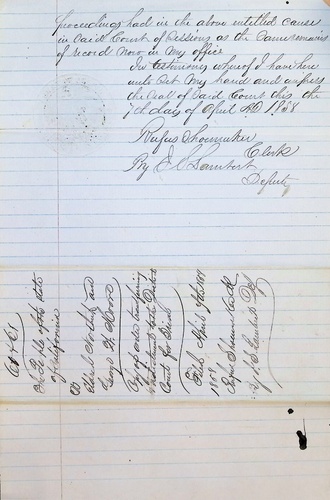 proceedings had in the above entitled cause
in said Court of Sessions as the same remains
of record now in my office
In testimony whereof I have here
unto set my hand and affixed
the seal of said Court this the
7th day of April AD 1858
Rufus Shoemaker
Clerk
By
Lambert
Deputy
The People of the State
of California
vs
and
George
Copy of order transferring
Indictment to the District
Court for
Filed April 7th
1858
Rufus Shoemaker Clk
By
Lambert Dpt